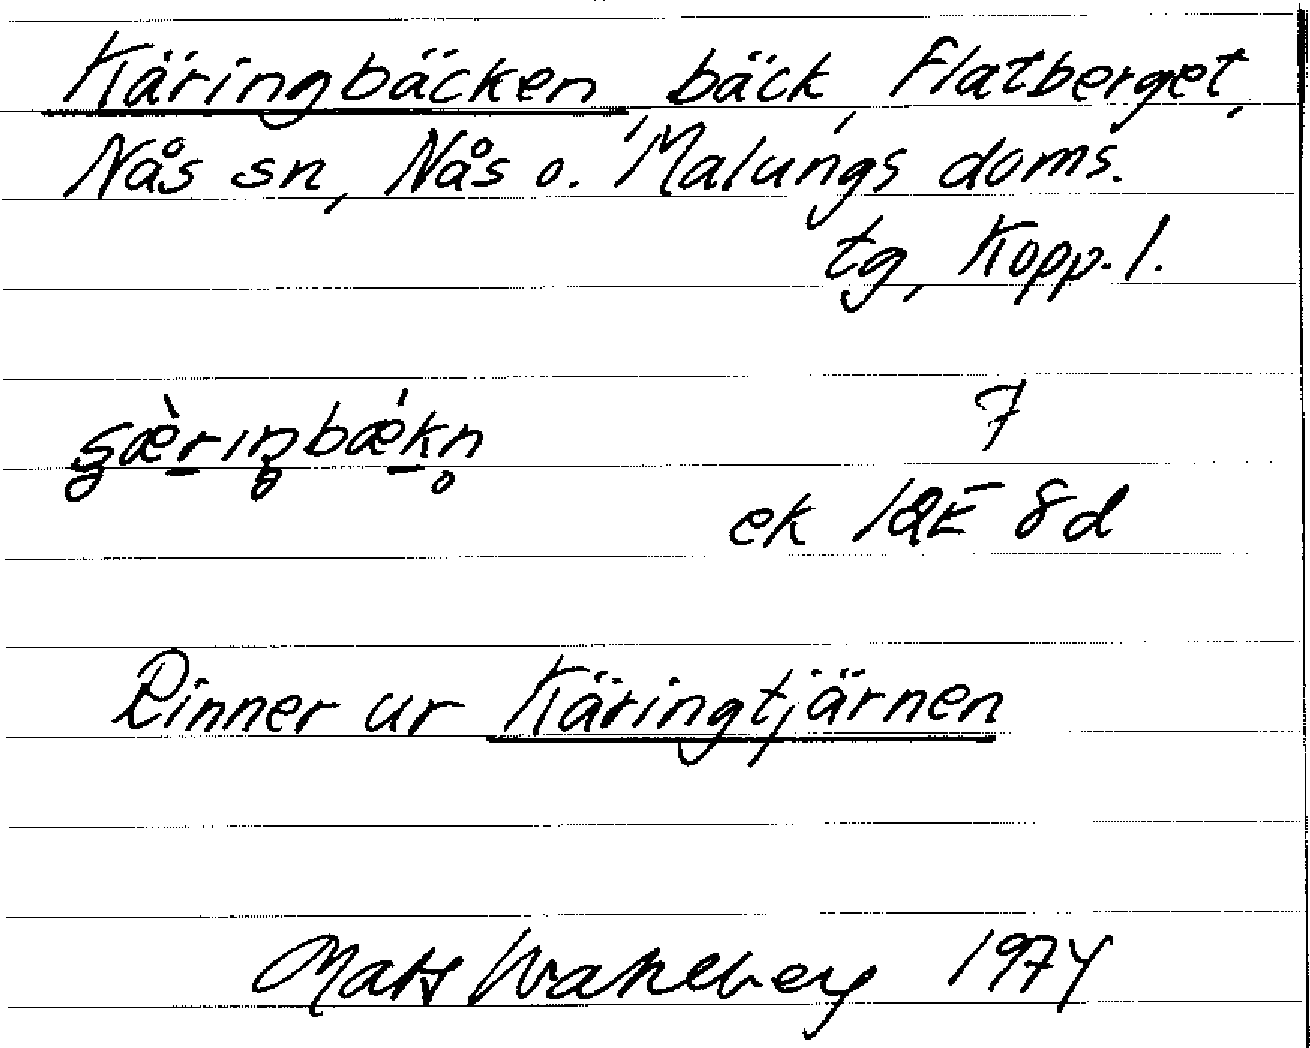 Käringbäcken, bäck, Flatberget,
Nås sn, Nås o. Malungs doms.
tg, Kopp. l.
7
ek 12E 8d
Rinner ur Käringtjärnen
Mats Wahlberg 1974